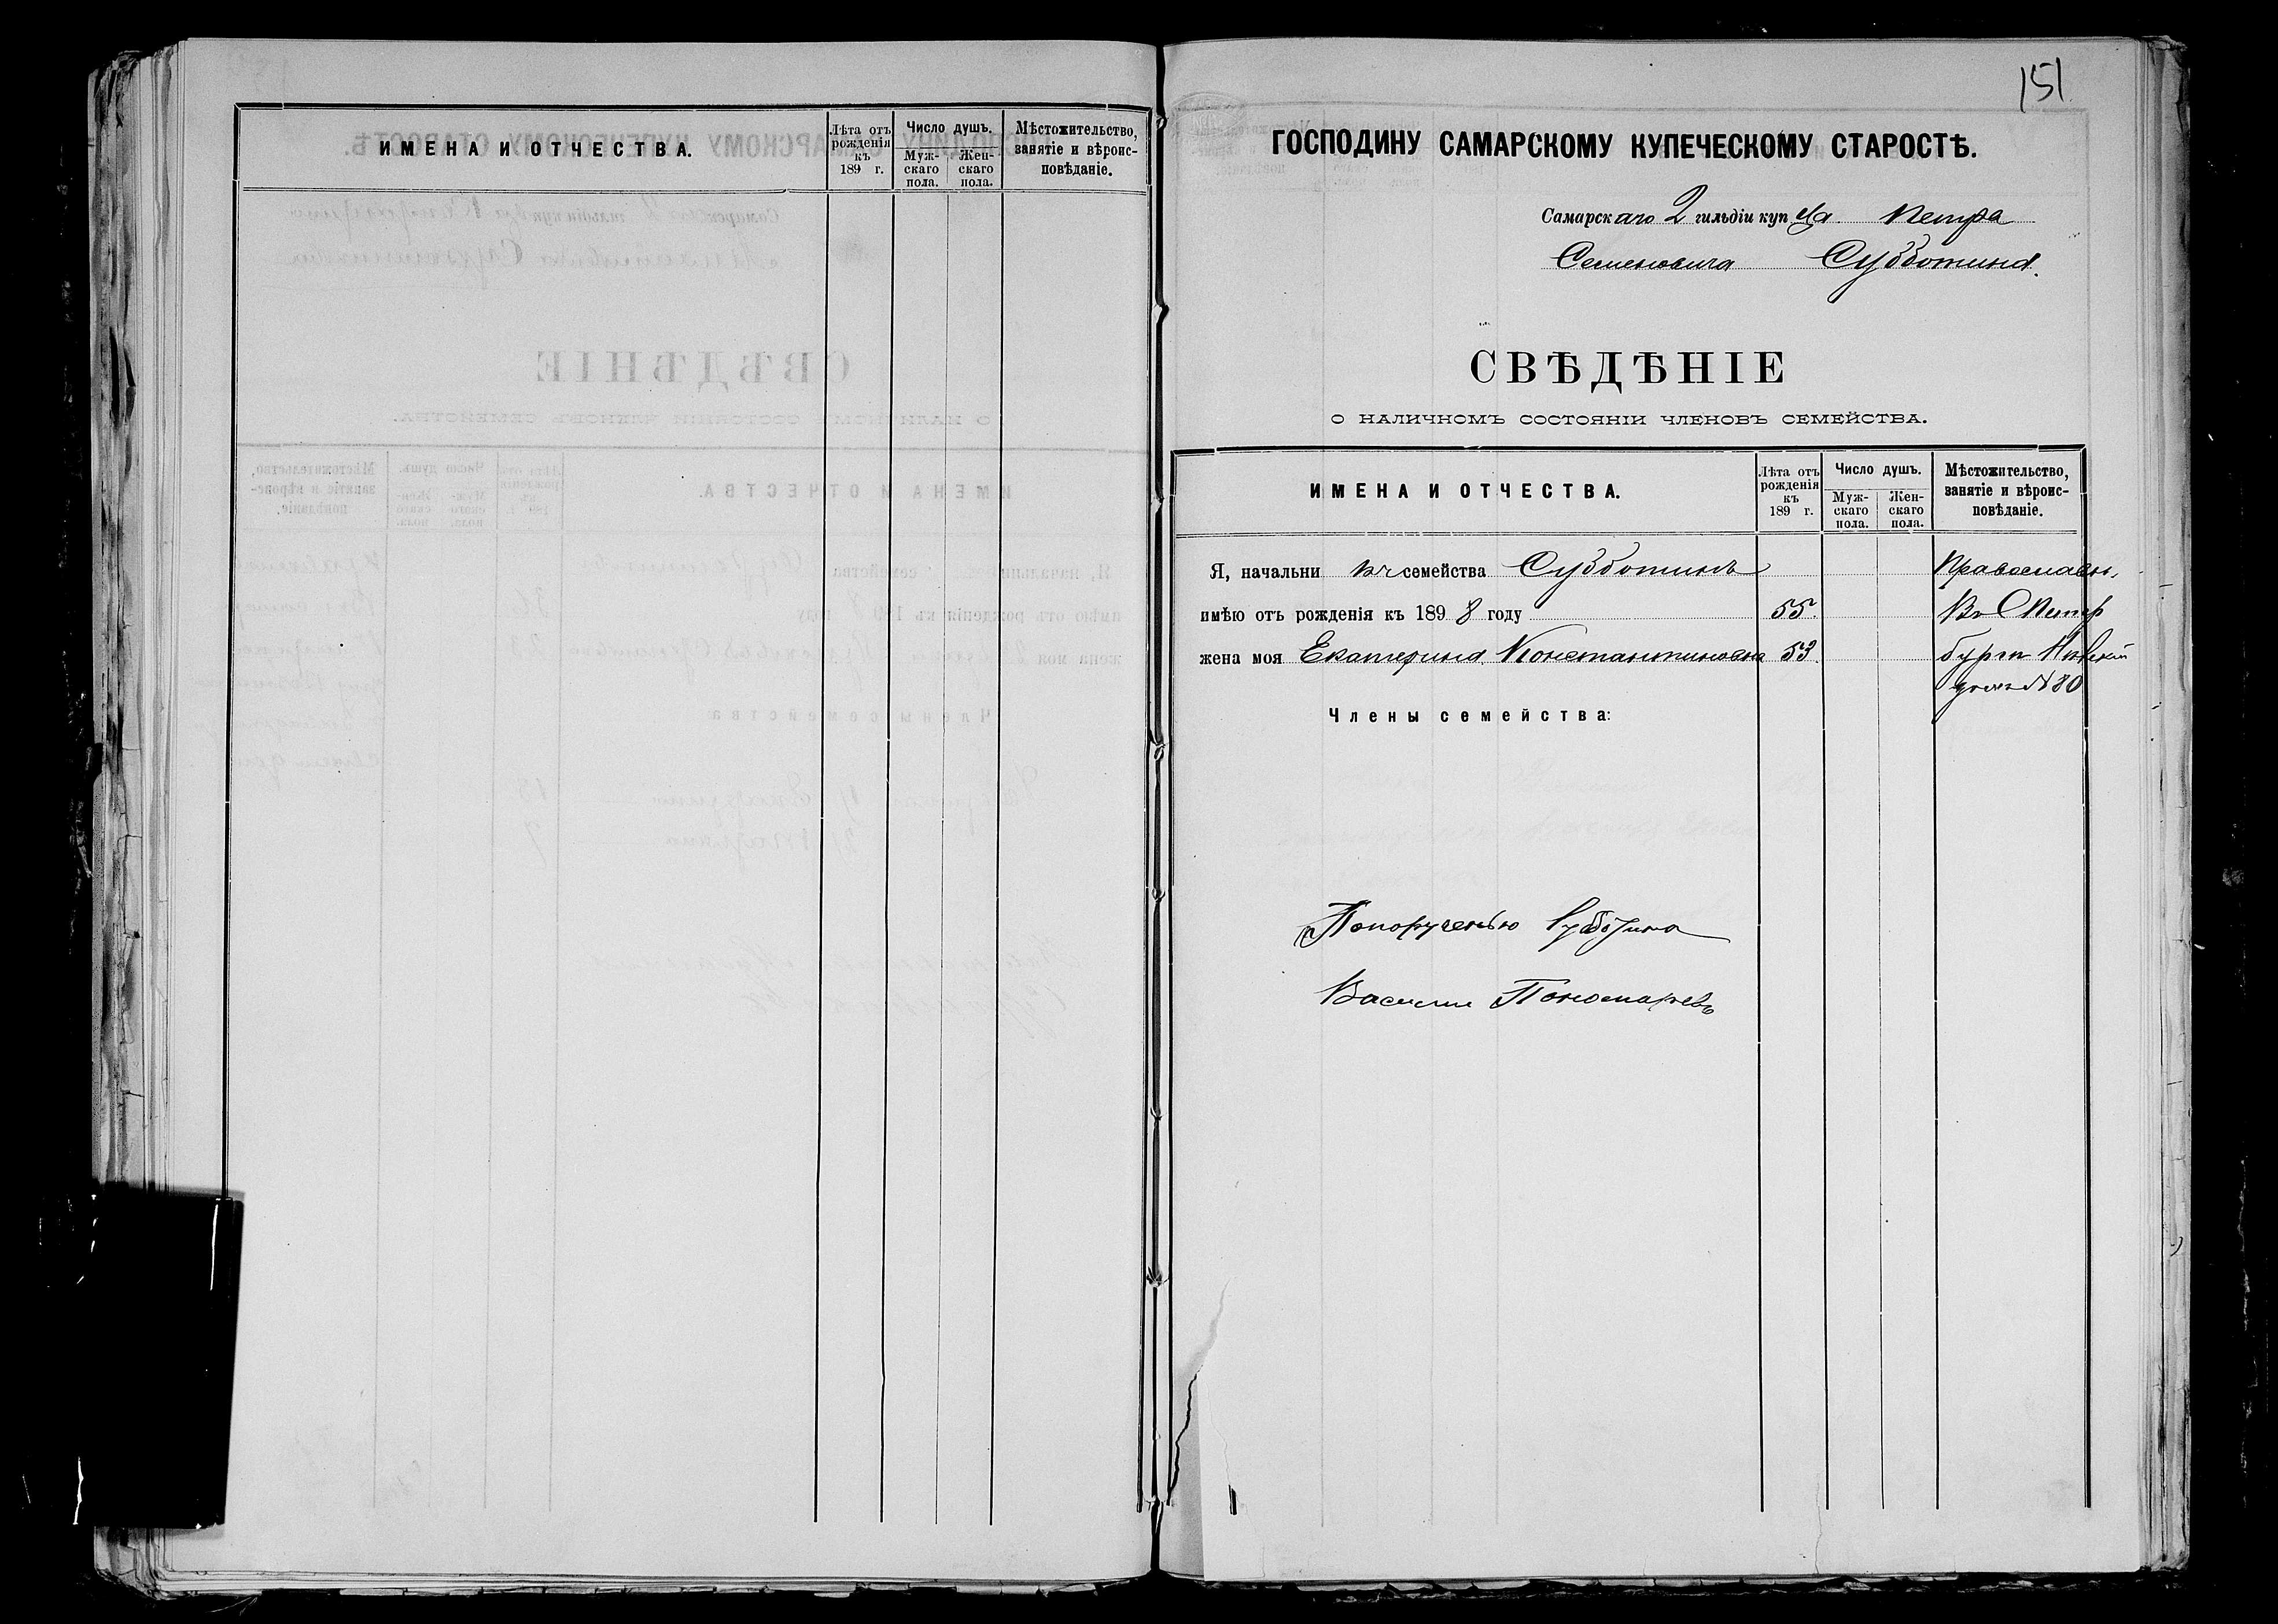 ИМЕНА И ОТЧЕСТВА.
Лѣта отъ рожденія къ 189 г.
Число душъ.
Муж-скаго пола.
Жен-скаго пола.
Мѣстожительство, занятіе и вѣроис-повѣданіе.
151
ГОСПОДИНУ САМАРСКОМУ КУПЕЧЕСКОМУ СТАРОСТѢ.
Самарскаго 2 гильдіи купца Петра
Семеновича Субботина.
СВѢДѢНІЕ
О НАЛИЧНОМЪ СОСТОЯНІИ ЧЛЕНОВЪ СЕМЕЙСТВА.
ИМЕНА И ОТЧЕСТВА.
Лѣта отъ рожденія къ 189 г.
Число душъ.
Муж-скаго пола.
Жен-скаго пола.
Мѣстожительство, занятіе и вѣроис-повѣданіе.
Я, начальникъ семейства Субботинъ Православн.
имѣю отъ рожденія къ 1898 году 55. Въ С Петер
жена моя Екатерина Константиновна 53. бургѣ Невскій
домъ № 80
Члены семейства:
Попорученью Субботина
Василий Пономаревъ